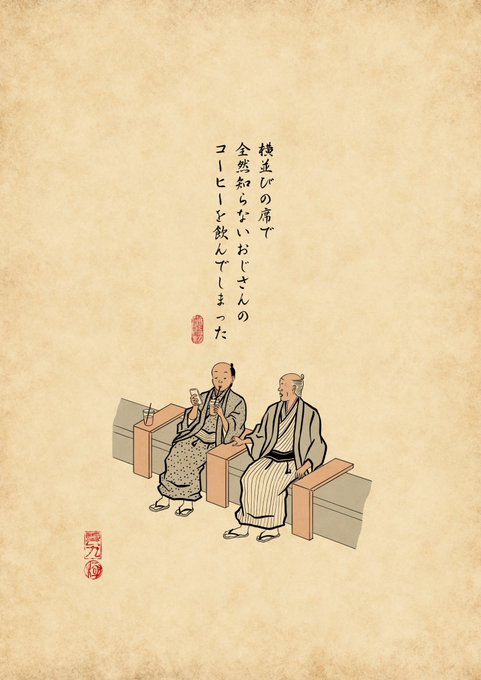 横並びの席で
全然知らないおじさんの
コーヒーを飲んでしまった